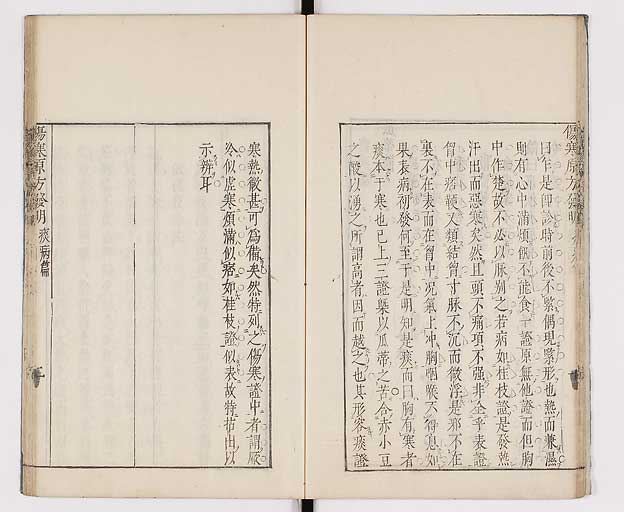 傷寒原方發明
曰乍是卽診時前後不緊偶現緊形也熱而兼濕
則有心中滿煩飢不能食一證原無他證而但胸
中作楚故不必以脉別之若病如桂枝證是發熱
汗出而惡寒矣然且頭不痛項不强非全乎表證
胷中痞鞕又類結胷寸脉不沉而微浮是邪不在
裏不在表而在胷中况氣上冲胸咽喉不得息如
果表病初發何至于是明知是痰而曰胸有寒者
痰本于寒也已上三證槩以瓜蒂之苦合赤小豆
之酸以湧之所謂高者因而越之也其形容痰證
寒熱微甚可爲備矣然特列之傷寒證中者謂厥
冷似虛寒煩滿似痞如桂枝證似表故特揭出以
示辨耳
傷寒原方發明 痰病篇